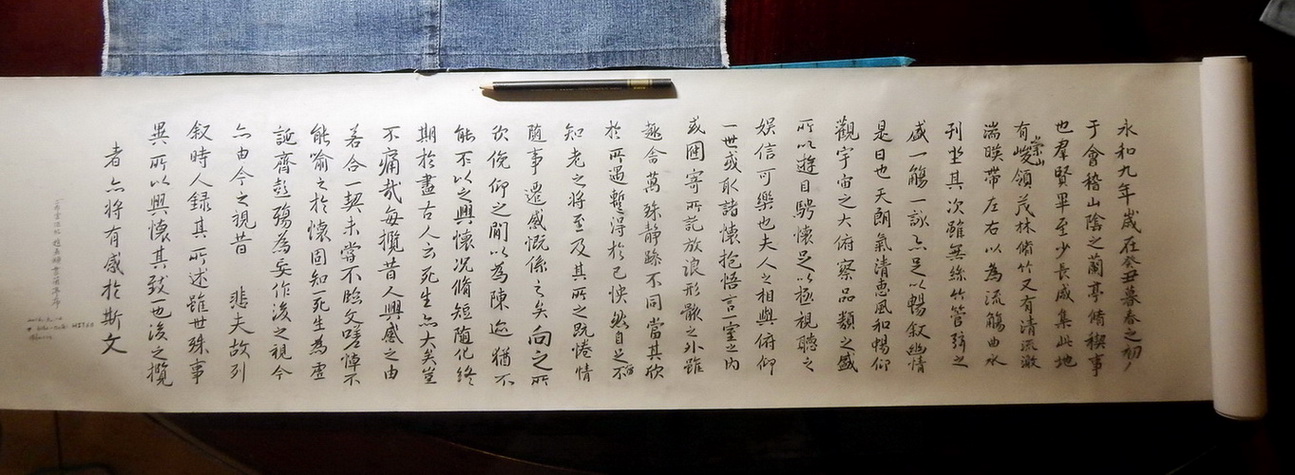 永和九年歲在癸丑暮春之初
于會稽山陰之蘭亭脩稧事
也羣賢畢至少長咸集此地
有崇山峻領茂林脩竹又有清流激
湍暎帶左右以為流觴曲水
列坐其次雖無絲竹管弦之
盛一觴一詠亦足以暢叙幽情
是日也天朗氣清惠風和暢仰
觀宇宙之大俯察品類之盛
所以遊目騁懷足以極視聽之
娛信可樂也夫人之相與俯仰
一世或取諸懷抱悟言一室之內
或因寄所託放浪形骸之外雖
趣舍萬殊靜躁不同當其欣
於所遇蹔得於己怏然自足不
知老之將至及其所之既惓情
隨事遷感慨係之矣向之所
欣俛仰之閒以為陳迹猶不
能不以之興懷況脩短隨化終
期於盡古人云死生亦大矣豈
不痛哉每攬昔人興感之由
若合一契未嘗不臨文嗟悼不
能喻之於懷固知死生為虛
誕齊彭殤為妄作後之視今
亦由今之視昔 悲夫故列
叙時人録其所述雖世殊事
異所以興懷其致一也後之攬
者亦將有感於斯文